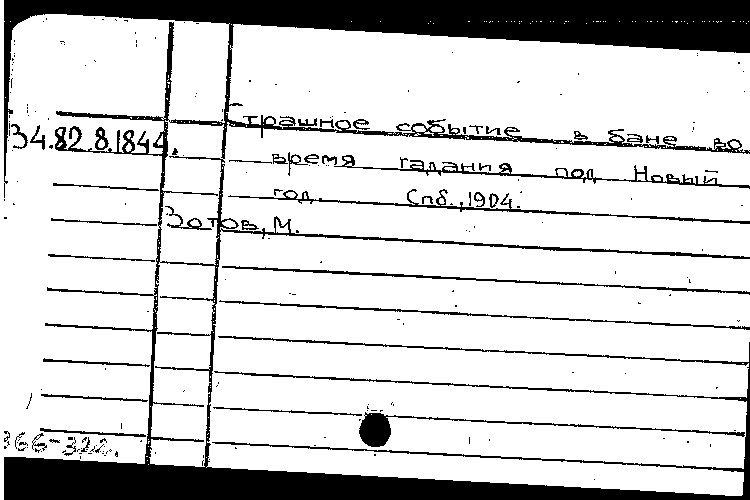 трашное событие в бане во
34.82.8.1844.
время гадания под Новый
год. Спб., 1904.
Зотов, М.
366-322.